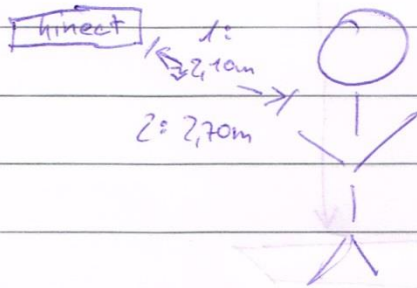 kinect
1:
2,10m
2: 2,70m